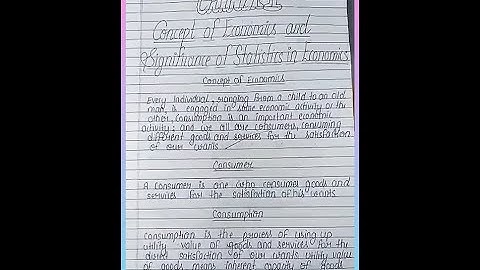 Concept of Economics and
Significance of Statistics in Economics
Concept of Economics
Every individual, ranging from a child to an old
man, is engaged in some economic activity or the
other, Consumption is an important economic
activity; and we all are consumers, consuming
different goods and services for the satisfaction
of our wants
Consumer
A consumer is one who consumes goods and
services for the satisfaction of his wants
Consumption
Consumption is the process of using up
utility value of goods and services for the
direct satisfaction of our wants utility value
of goods means inherent capacity of goods